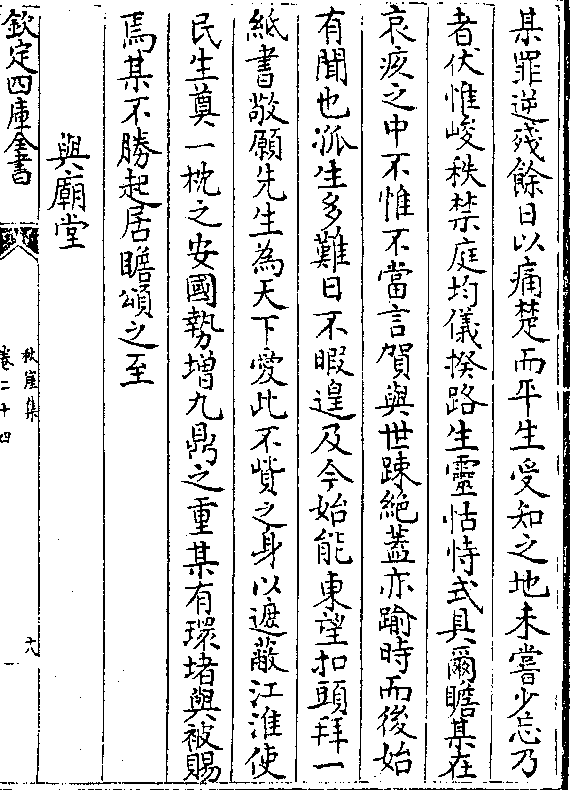 某罪逆殘餘日以痛楚而平生受知之地未嘗少忘乃
者伏惟峻秩禁庭均儀揆路生靈怙恃式具爾瞻某在
哀疚之中不惟不當言賀與世踈絶蓋亦踰時而後始
有聞也孤生多難日不暇遑及今始能東望扣頭拜一
紙書敬願先生為天下愛此不貲之身以遮蔽江淮使
民生奠一枕之安國勢增九鼎之重某有環堵與被賜
焉某不勝起居瞻頌之至
與廟堂
欽定四庫全書
秋崖集
卷二十四
十八